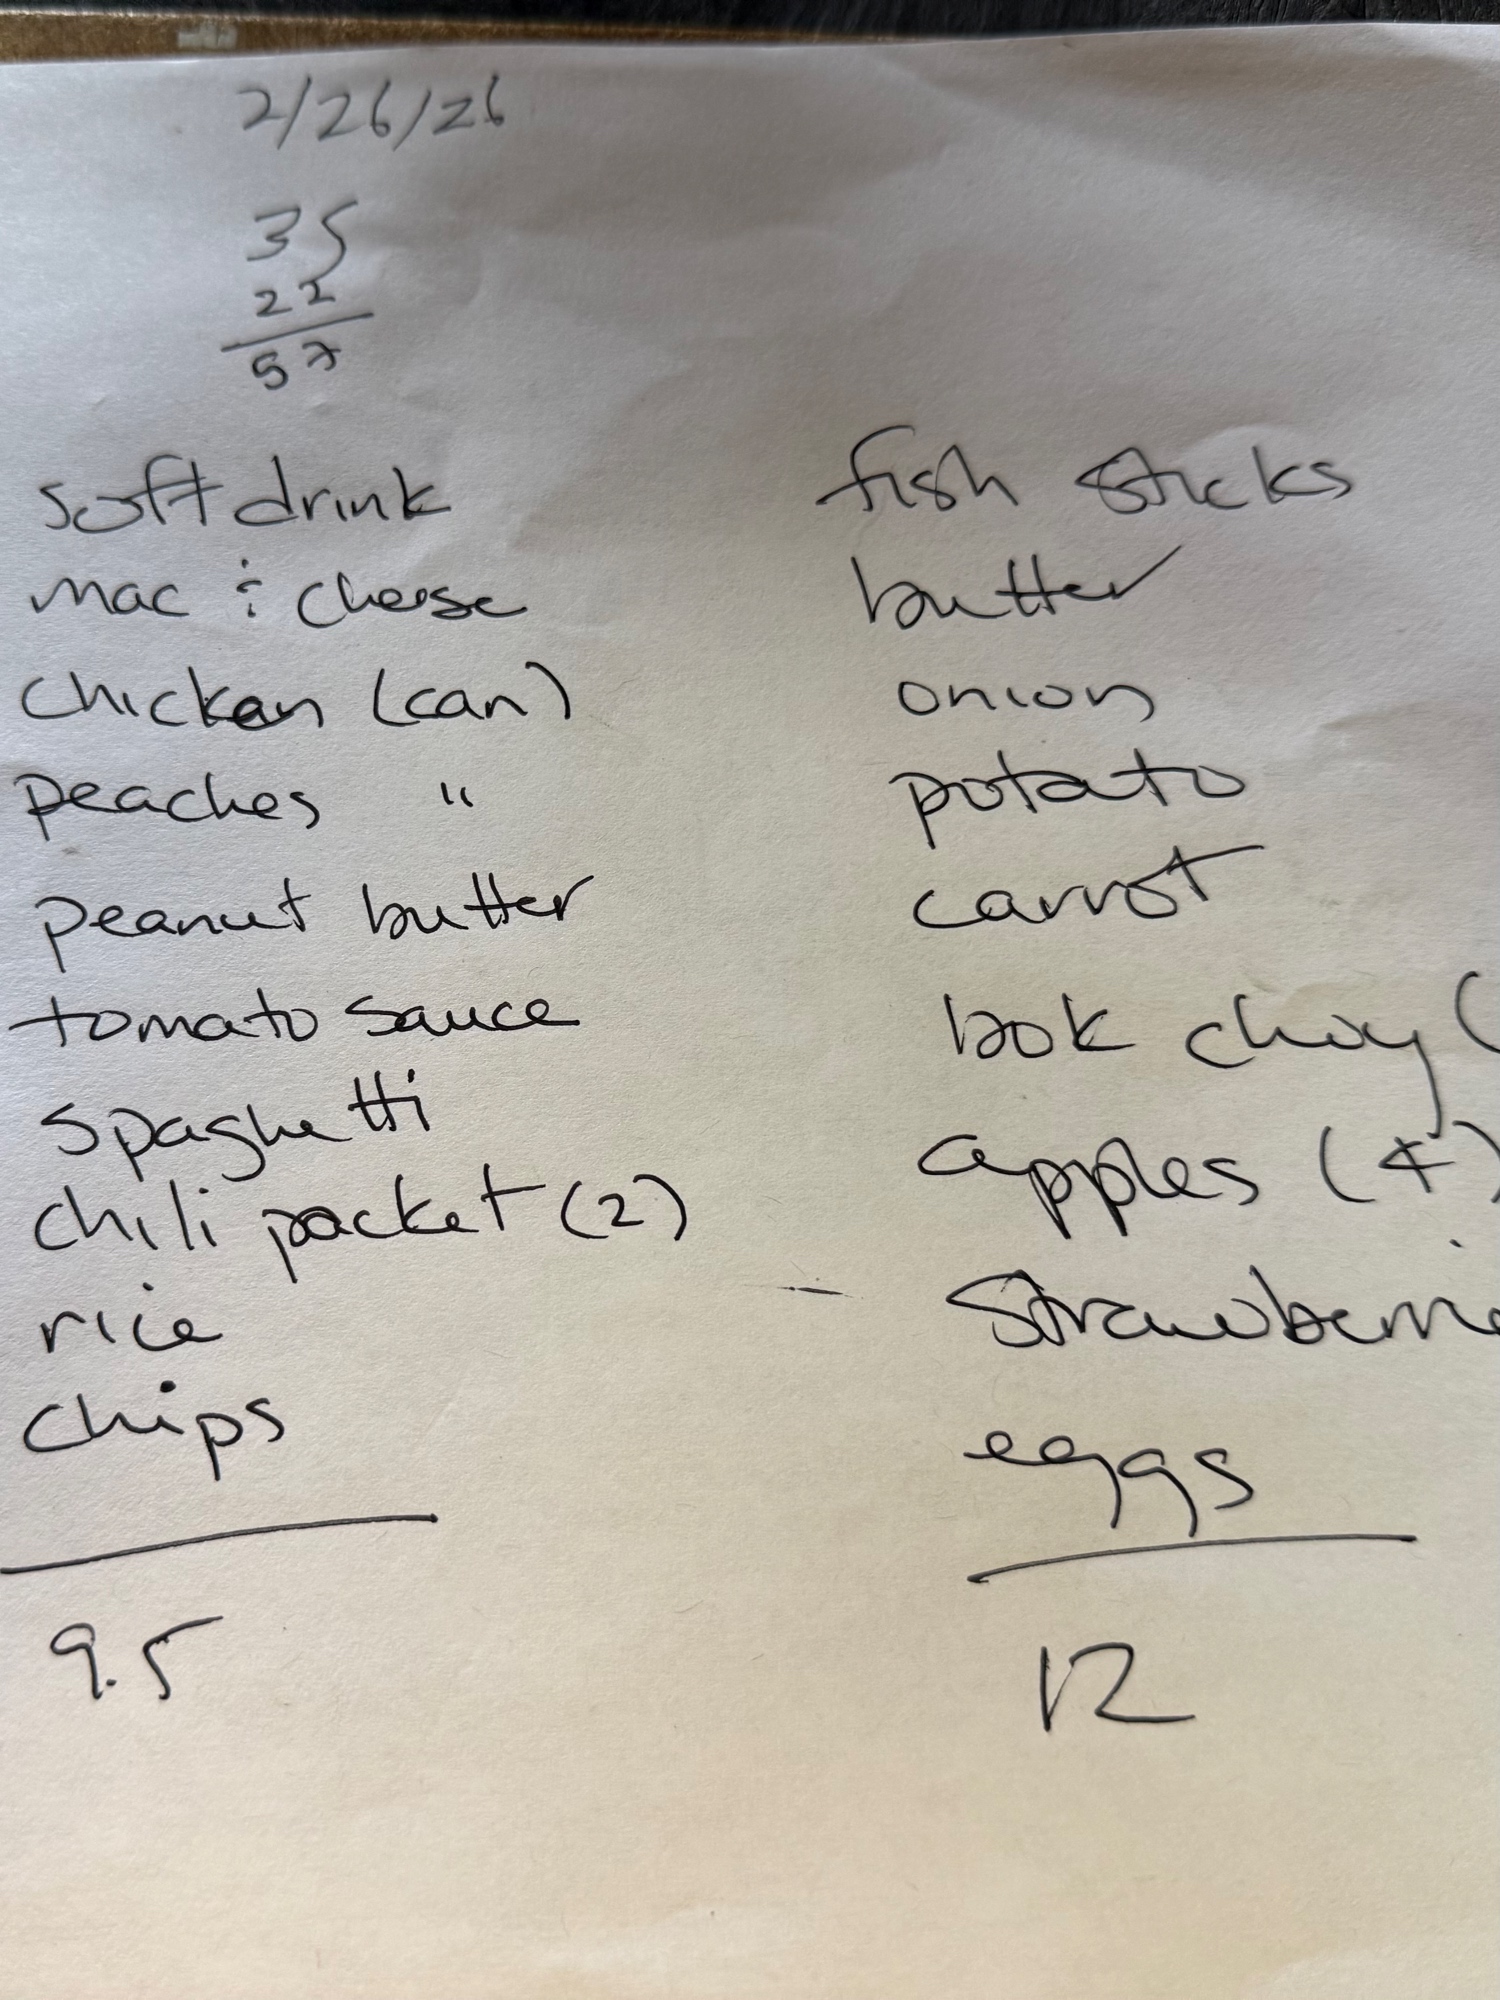 2/26/26
35
22
57
soft drink
mac & cheese
chicken (can)
peaches "
peanut butter
tomato sauce
spaghetti
chili packet (2)
rice
chips
9.5
fish sticks
butter
onion
potato
carrot
bok choy (
apples (4)
Strawberrie
eggs
12